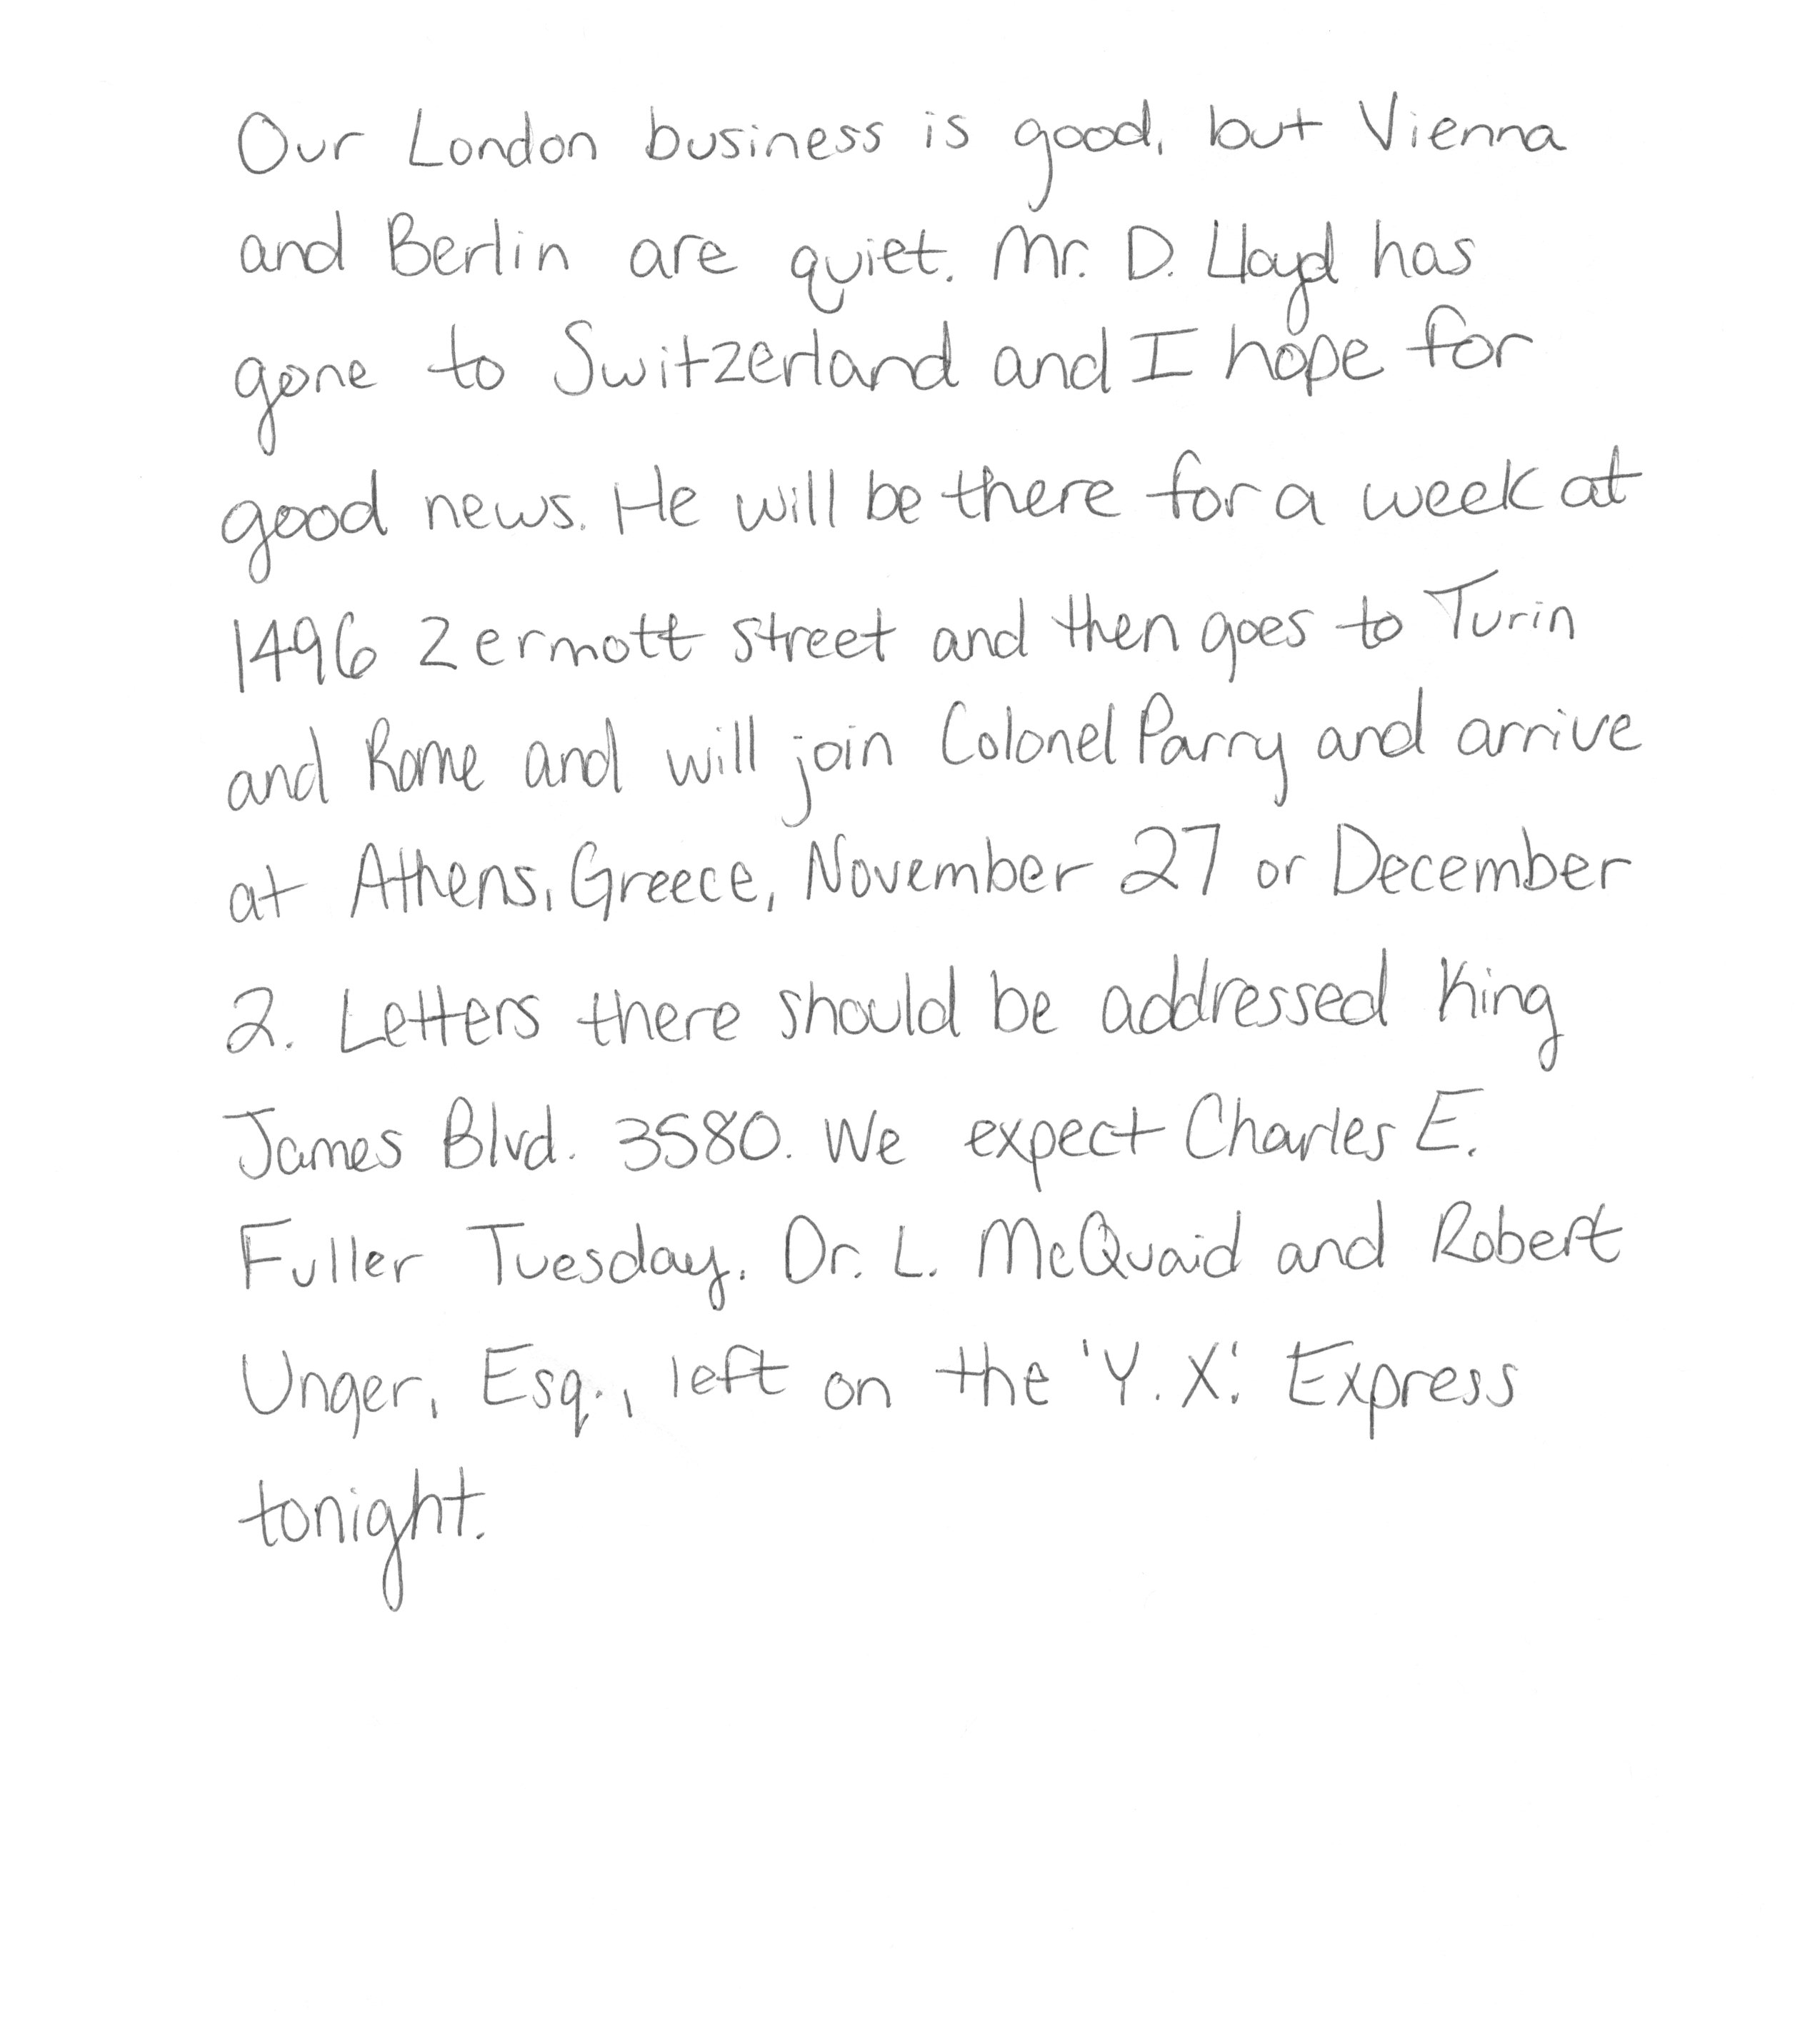 Our London business is good, but Vienna
and Berlin are quiet. Mr. D. Lloyd has
gone to Switzerland and I hope for
good news. He will be there for a week at
1496 Zermott street and then goes to Turin
and Rome and will join Colonel Parry and arrive
at Athens, Greece, November 27 or December
2. Letters there should be addressed King
James Blvd. 3580. We expect Charles E.
Fuller Tuesday. Dr. L. McQuaid and Robert
Unger, Esq., left on the 'Y. X.' Express
tonight.